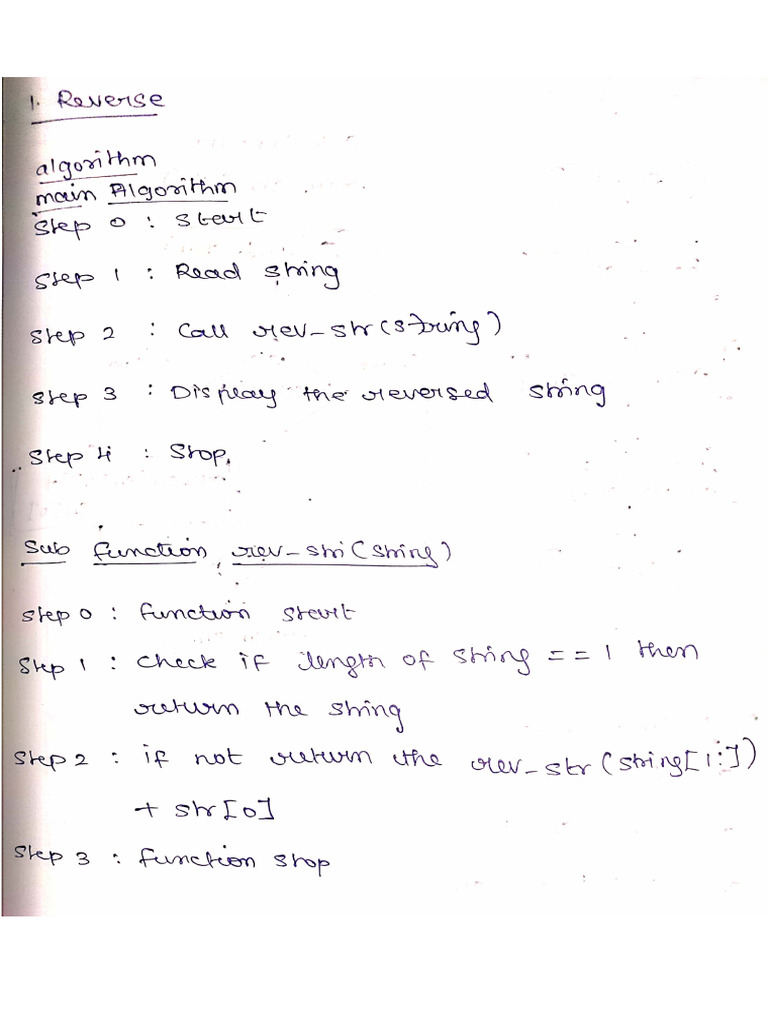 1. Reverse
algorithm
main Algorithm
Step 0 : Start
Step 1 : Read string
Step 2 : Call rev-str(string)
Step 3 : Display the reversed string
Step 4 : Stop.
Sub function, rev-stri(string)
Step 0 : function start
Step 1 : check if length of string == 1 then
return the string
Step 2 : if not return the rev-str(string[1:])
+ str[0]
Step 3 : function stop